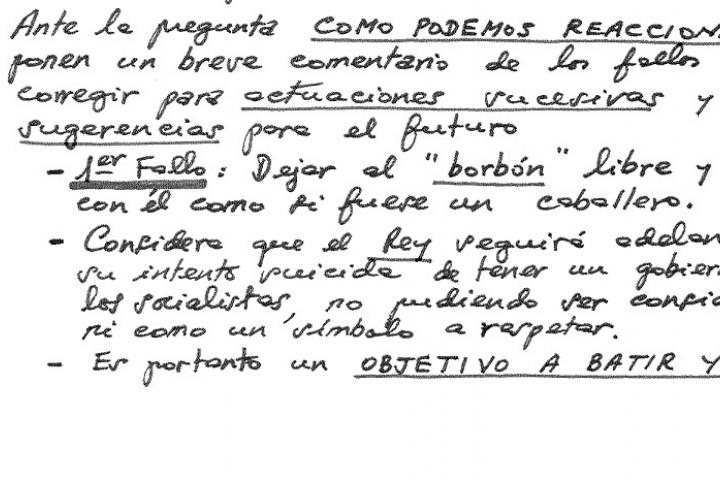 Ante la pregunta COMO PODEMOS REACCION
ponen un breve comentario de los fallos
corregir para actuaciones sucesivas y
sugerencias para el futuro
- 1er Fallo: Dejar al "borbón" libre y
con él como si fuese un caballero.
- Considera que el Rey seguirá adelan
su intento suicida de tener un gobier
los socialistas, no pudiendo ser consid
ni como un símbolo a respetar.
- Es portanto un OBJETIVO A BATIR Y